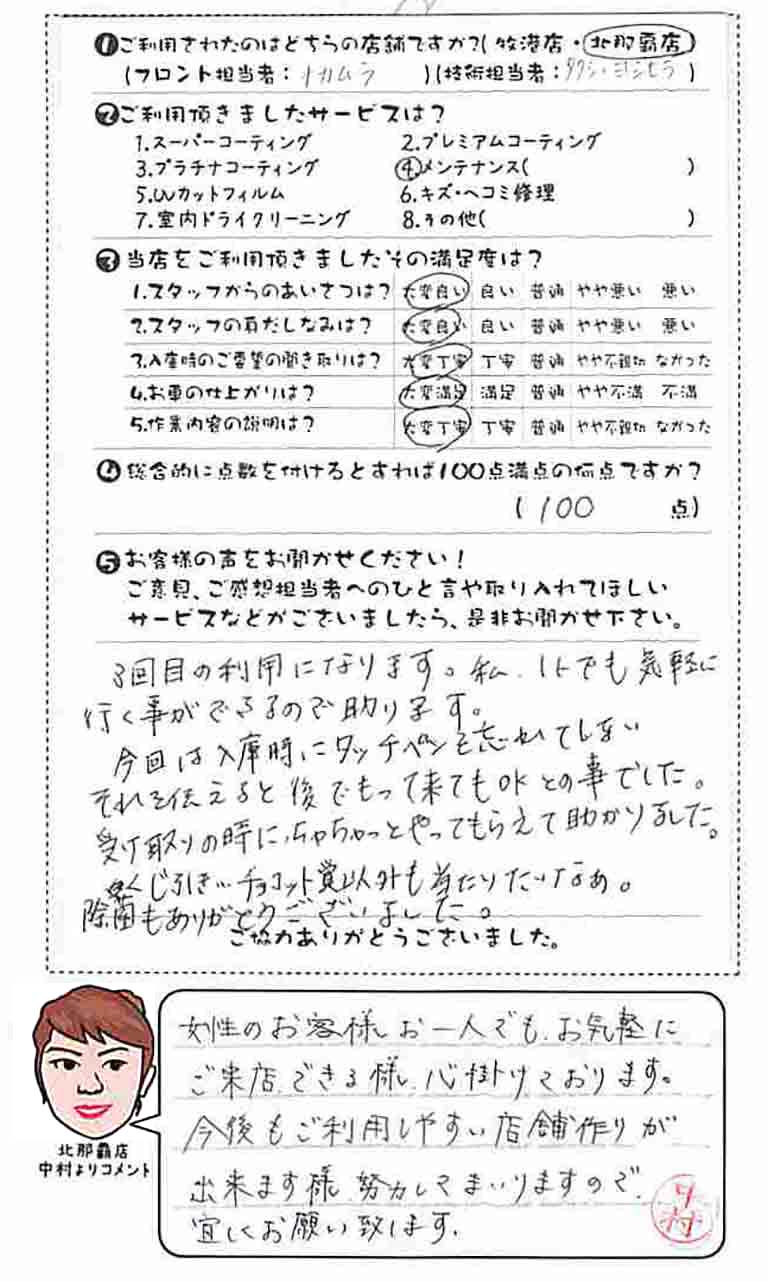 ❶ご利用されたのはどちらの店舗ですか?(牧港店・北那覇店)
(フロント担当者: ナカムラ )(技術担当者: )
❷ご利用頂きましたサービスは?
1.スーパーコーティング 2.プレミアムコーティング
3.プラチナコーティング ④メンテナンス( )
5.UVカットフィルム 6.キズ・ヘコミ修理
7.室内ドライクリーニング 8.その他( )
❸当店をご利用頂きましたその満足度は?
1.スタッフからのあいさつは? 大変良い 良い 普通 やや悪い 悪い
2.スタッフの身だしなみは? 大変良い 良い 普通 やや悪い 悪い
3.入庫時のご要望の聞き取りは? 大変丁寧 丁寧 普通 やや不親切 なかった
4.お車の仕上がりは? 大変満足 満足 普通 やや不満 不満
5.作業内容の説明は? 大変丁寧 丁寧 普通 やや不親切 なかった
❹総合的に点数を付けるとすれば100点満点の何点ですか?
( 100 点)
❺お客様の声をお聞かせください!
ご意見、ご感想担当者へのひと言や取り入れてほしい
サービスなどがございましたら、是非お聞かせ下さい。
3回目の利用になります。私、1人でも気軽に
行く事ができるので助ります。
今回は入庫時にタッチペンを忘れてしまい
それを伝えると後でもって来てもOKとの事でした。
受け取りの時に、ちゃちゃっとやってもらえて助かりました。
くじ引き…チョコット賞以外も当たりたいなぁ。
除菌もありがとうございました。
ご協力ありがとうございました。
女性のお客様お一人でも、お気軽に
ご来店できる様、心掛けております。
今後もご利用しやすい店舗作りが
出来ます様、努力してまいりますので、
宜しくお願い致します。
北那覇店
中村よりコメント